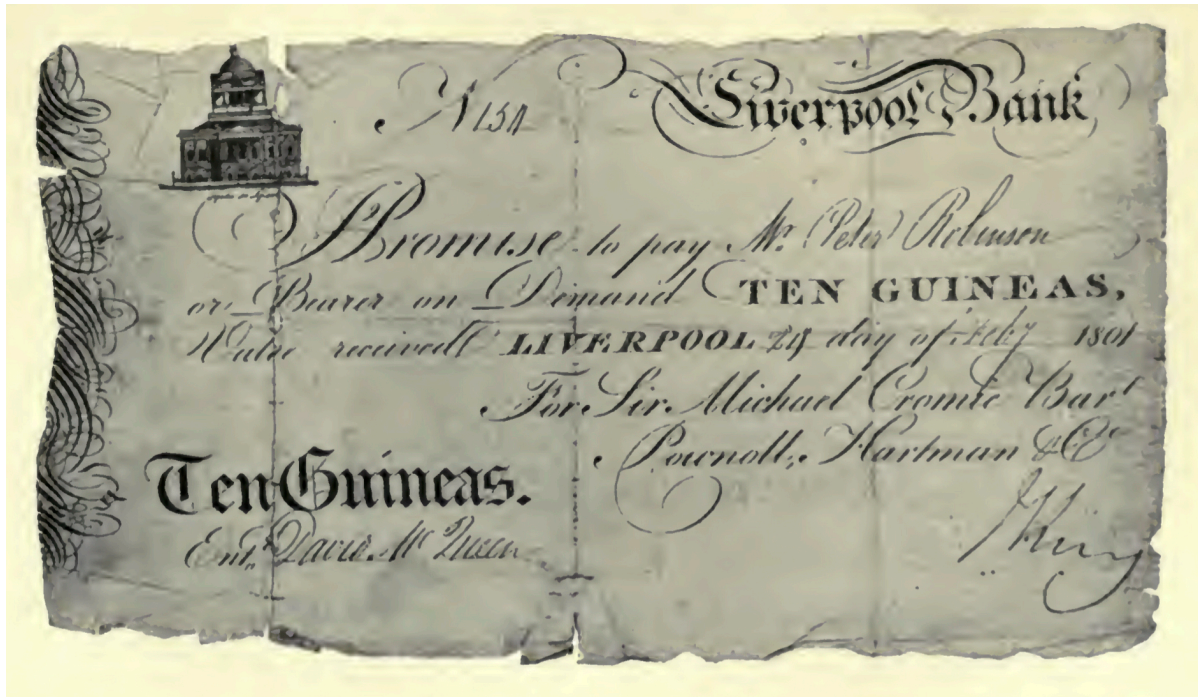 No 151
Liverpool Bank
I Promise to pay Mr. Peter Robinson
or Bearer on Demand TEN GUINEAS,
Value received LIVERPOOL 24 day of Feby 1801
For Sir Michael Cromie Bart
Pownoll, Hartman & Co
Ten Guineas.
Entd. David McQueen